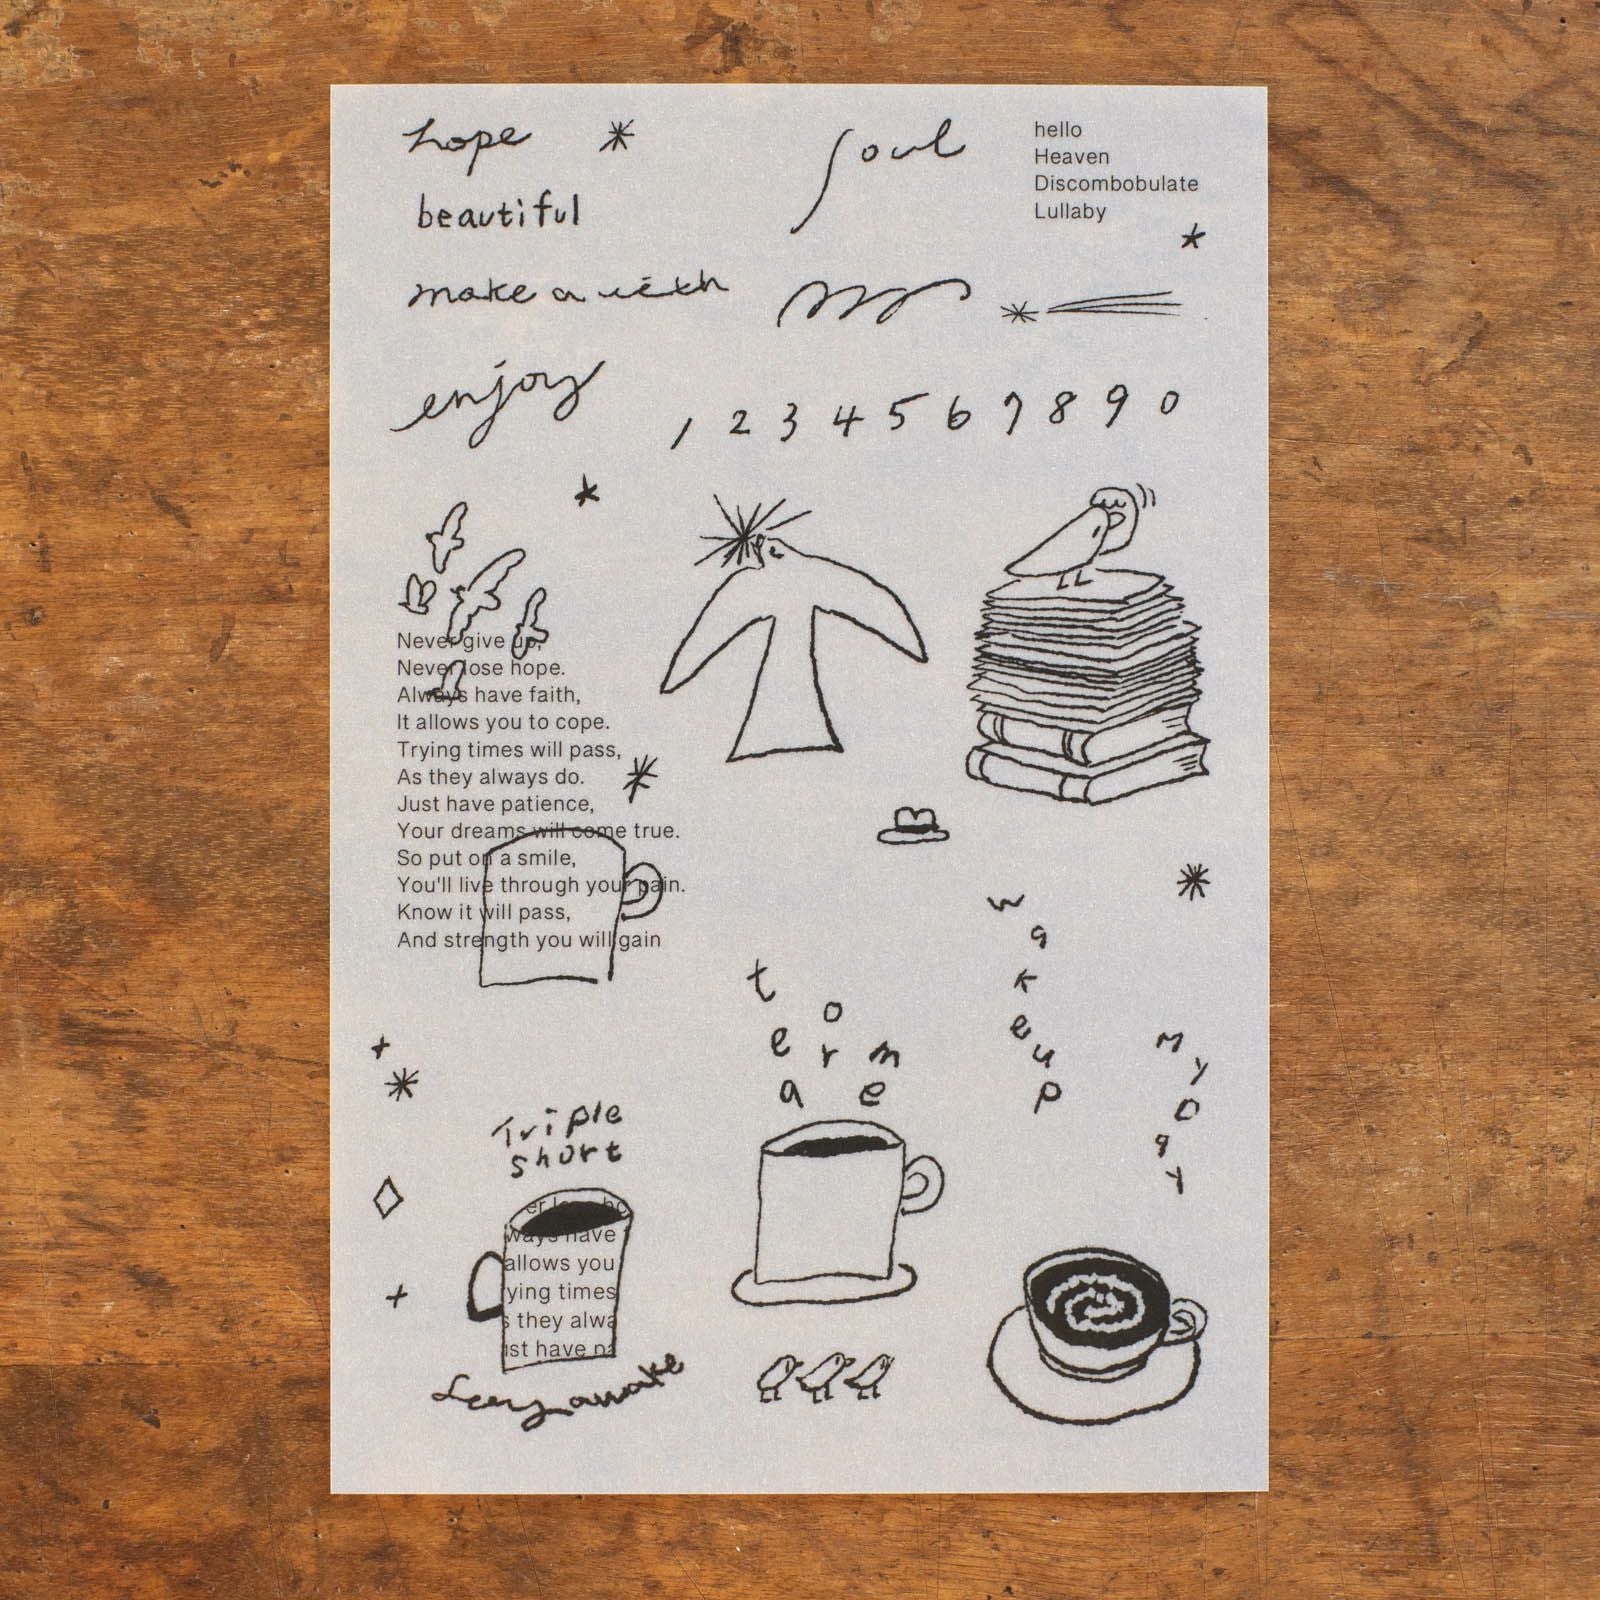 hope
beautiful
make a
enjoy
soul
hello
Heaven
Discombobulate
Lullaby
1 2 3 4 5 6 7 8 9 0
Never give up,
Never lose hope.
Always have faith,
It allows you to cope.
Trying times will pass,
As they always do.
Just have patience,
Your dreams will come true.
So put on a smile,
You'll live through your pain.
Know it will pass,
And strength you will gain
tea
or
me
wake up
My Day
Triple
short
ways have
allows you
ying times
they alwa
have
awake